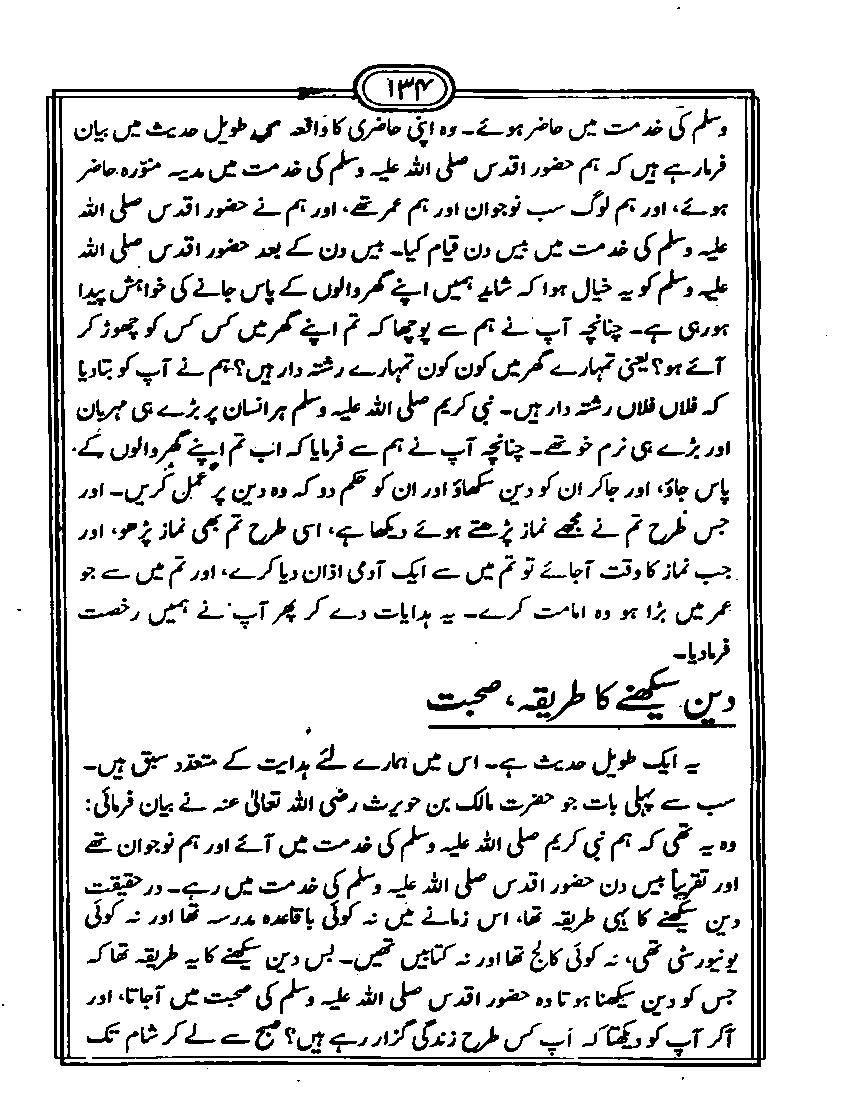 ۱۳۴
وسلم کی خدمت میں حاضر ہوئے۔ وہ اپنی حاضری کا واقعہ اس طویل حدیث میں بیان
فرما رہے ہیں کہ ہم حضور اقدس صلی اللہ علیہ وسلم کی خدمت میں مدینہ منوّرہ حاضر
ہوئے، اور ہم لوگ سب نوجوان اور ہم عمر تھے، اور ہم نے حضور اقدس صلی اللہ
علیہ وسلم کی خدمت میں بیس دن قیام کیا۔ بیس دن کے بعد حضور اقدس صلی اللہ
علیہ وسلم کو یہ خیال ہوا کہ شاید ہمیں اپنے گھر والوں کے پاس جانے کی خواہش پیدا
ہو رہی ہے۔ چنانچہ آپ نے ہم سے پوچھا کہ تم اپنے گھر میں کس کس کو چھوڑ کر
آئے ہو؟ یعنی تمہارے گھر میں کون کون تمہارے رشتہ دار ہیں؟ ہم نے آپ کو بتا دیا
کہ فلاں فلاں رشتہ دار ہیں۔ نبی کریم صلی اللہ علیہ وسلم ہر انسان پر بڑے ہی مہربان
اور بڑے ہی نرم خو تھے۔ چنانچہ آپ نے ہم سے فرمایا کہ اب تم اپنے گھر والوں کے
پاس جاؤ، اور جا کر ان کو دین سکھاؤ اور ان کو حکم دو کہ وہ دین پر عمل کریں۔ اور
جس طرح تم نے مجھے نماز پڑھتے ہوئے دیکھا ہے، اسی طرح تم بھی نماز پڑھو، اور
جب نماز کا وقت آ جائے تو تم میں سے ایک آدمی اذان دیا کرے، اور تم میں سے جو
عمر میں بڑا ہو وہ امامت کرے۔ یہ ہدایات دے کر پھر آپ نے ہمیں رخصت
فرما دیا۔
دین سیکھنے کا طریقہ، صحبت
یہ ایک طویل حدیث ہے۔ اس میں ہمارے لئے ہدایت کے متعدد سبق ہیں۔
سب سے پہلی بات جو حضرت مالک بن حویرث رضی اللہ تعالیٰ عنہ نے بیان فرمائی:
وہ یہ تھی کہ ہم نبی کریم صلی اللہ علیہ وسلم کی خدمت میں آئے اور ہم نوجوان تھے
اور تقریباً بیس دن حضور اقدس صلی اللہ علیہ وسلم کی خدمت میں رہے۔ درحقیقت
دین سیکھنے کا یہی طریقہ تھا، اس زمانے میں نہ کوئی باقاعدہ مدرسہ تھا اور نہ کوئی
یونیورسٹی تھی، نہ کوئی کالج تھا اور نہ کتابیں تھیں۔ بس دین سیکھنے کا یہ طریقہ تھا کہ
جس کو دین سیکھنا ہوتا وہ حضور اقدس صلی اللہ علیہ وسلم کی صحبت میں آجاتا، اور
آکر آپ کو دیکھتا کہ آپ کس طرح زندگی گزار رہے ہیں؟ صبح سے لے کر شام تک